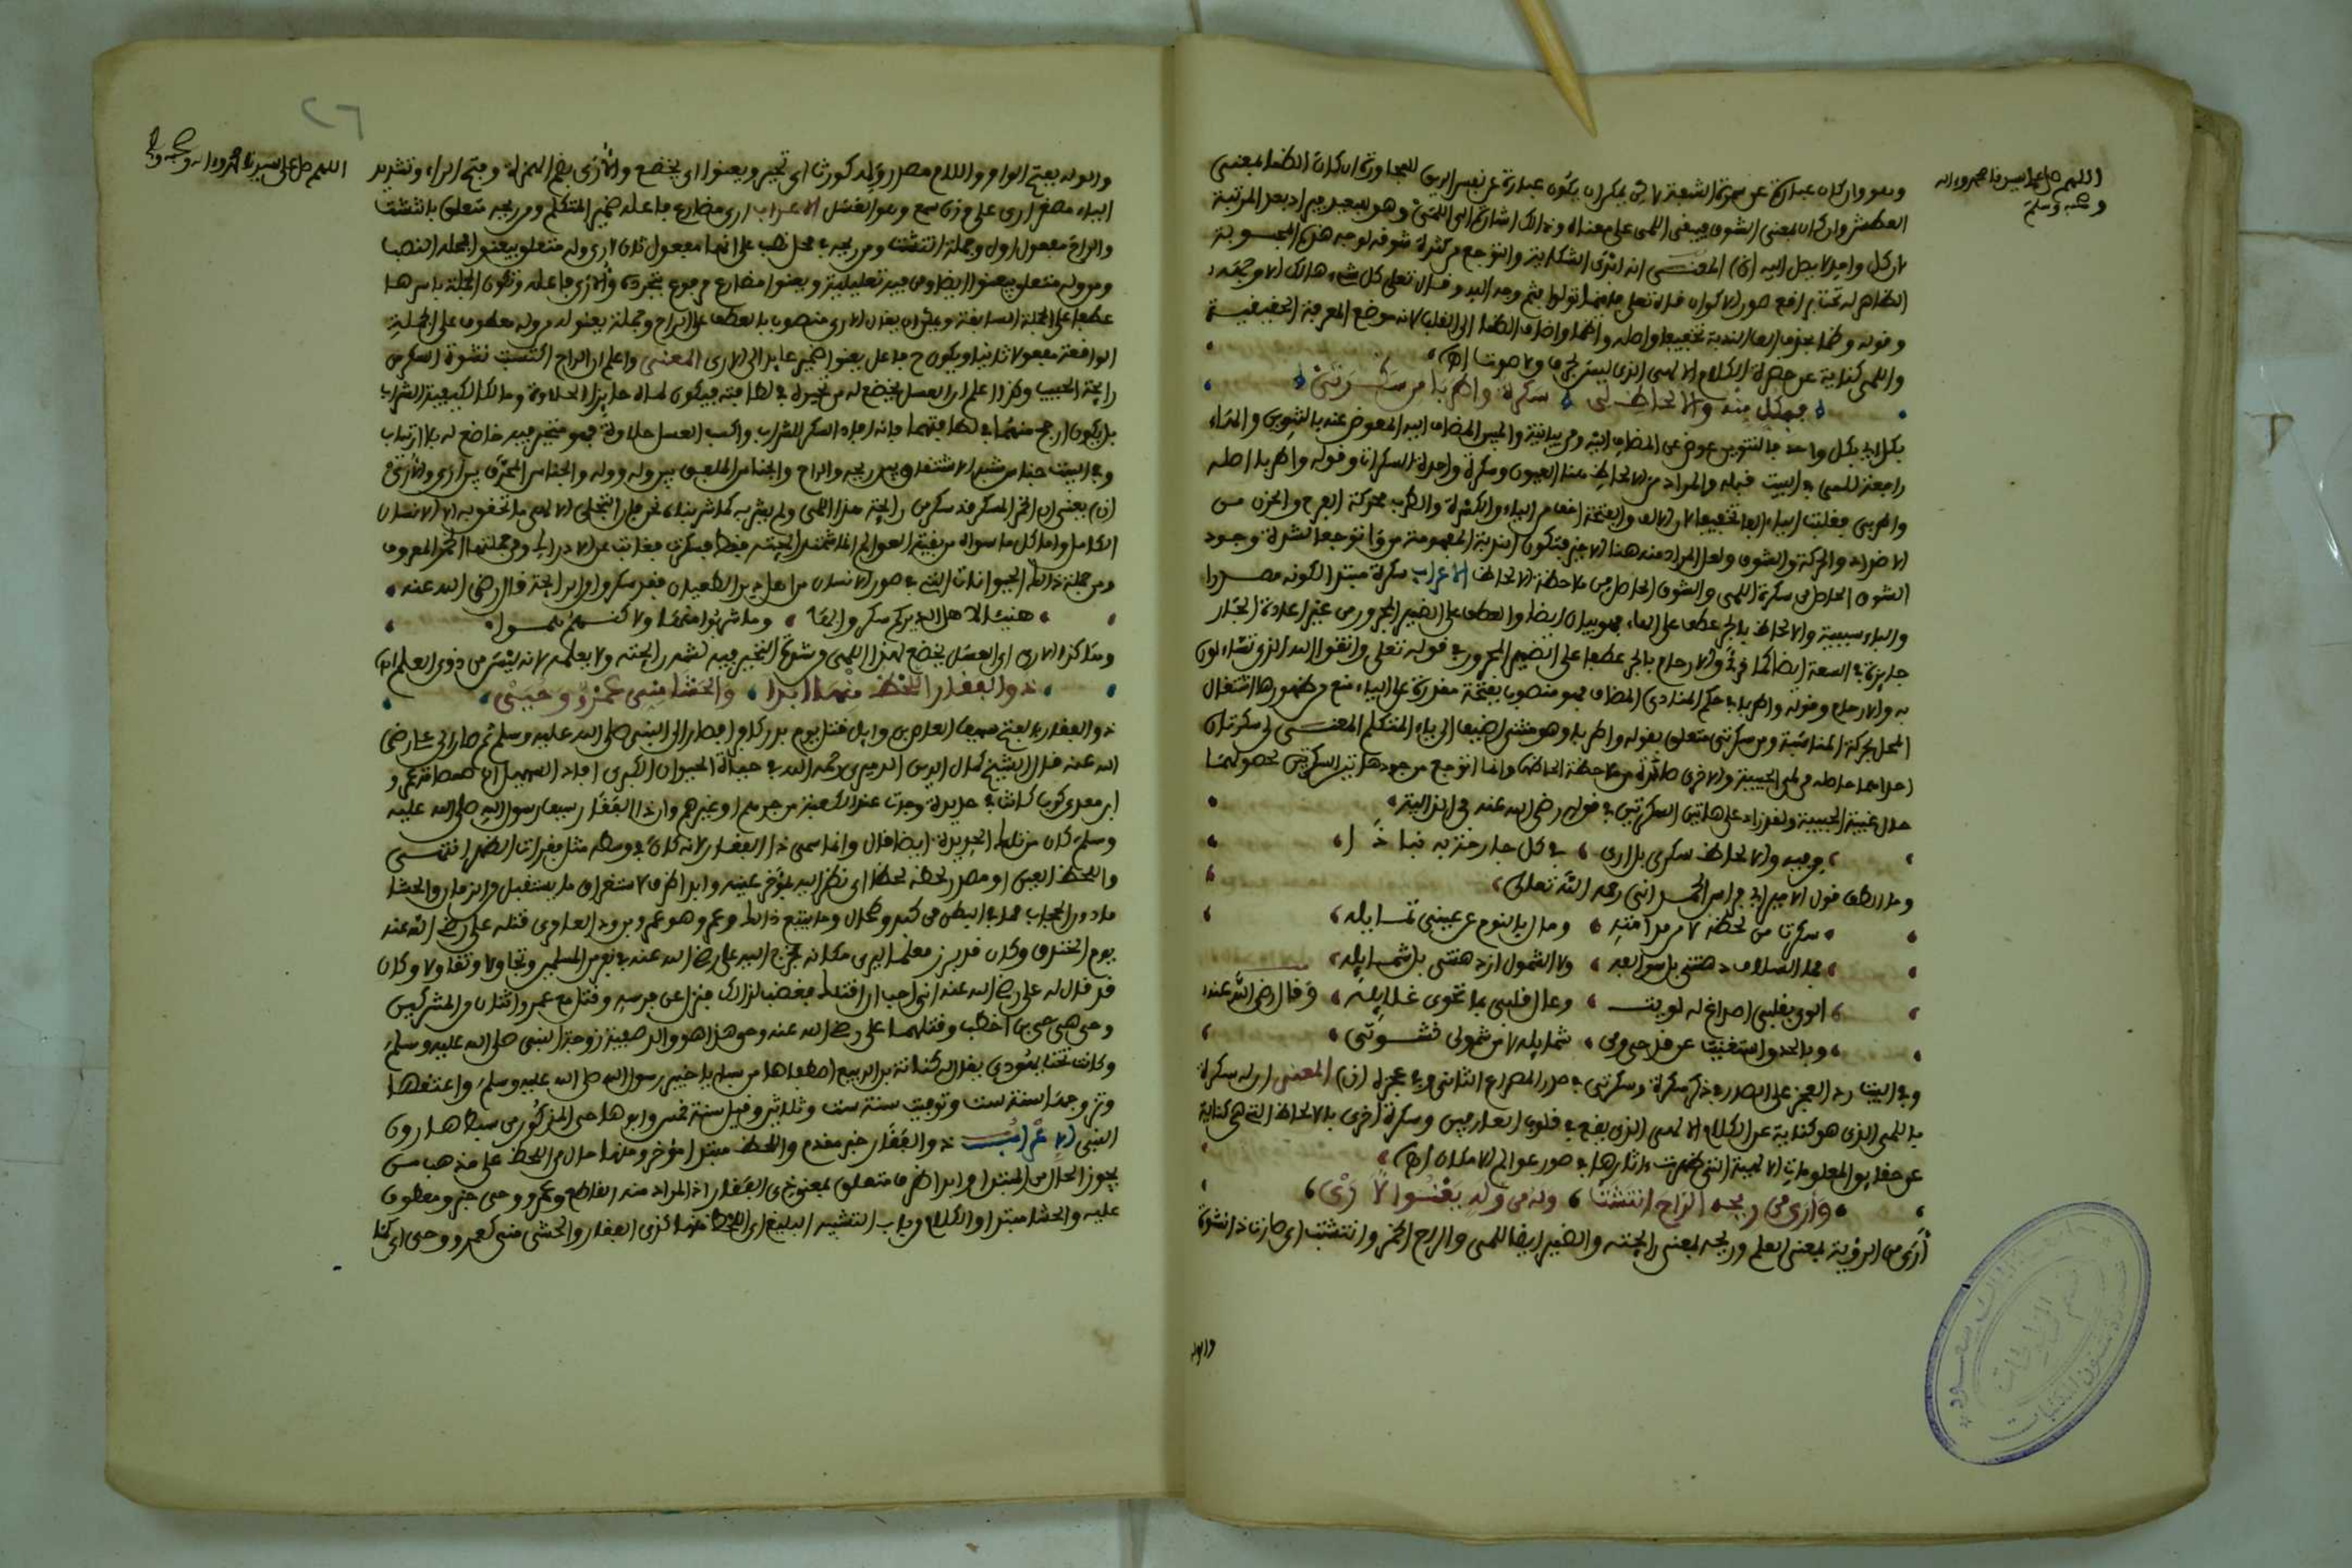 اللهم صل على سيدنا محمد واله
وصحبه وسلم
وهو وان كان عبارة عن سمرة الشفة لاكن يمكن ان يكون عبارة عن نفس الريق للمجاورة ان كان الظما بمعنى
العطش وان كان بمعنى الشوق فيبقى اللمى على معناه
لان كل واحد لا يصل اليه (ن) المعنى انه ابدى الشكاية والتوجع من كثرة شوقه لوجه هذه المحبوبة
الظاهر له صور الاكوان قال تعلى فاينما تولوا فثم وجه الله وقال تعلى كل شيء هالك الا وجهه
وقوله وظما بحذف الف الندبة تخفيفا واصله واظما واضاف الظما الى القلب لانه موضع المعرفة الحقيقية
واللمى كناية عن حضرة الكلام الالهى الذى ليس بحرف ولا صوت اهـ
فبكل منه والالحاظ لى سكرة واطربا من سكرتى
بكل اى بكل واحد فالتنوين عوض عن المضاف اليه ومن بيانية والضمير المضاف اليه المعوض عنه بالتنوين والهاء
راجعة للمى فى البيت قبله والمراد من الالحاظ هنا العيون وسكرة واحدة السكرات وقوله واطربا اصله
واطربى فقلبت الياء الفا تخفيفا لان الالف والفتحة اخف من الياء والكسرة والطرب محركة الفرح والحزن من
الاضداد والحركة والشوق ولعل المراد منه هنا الاخير فتكون الندبة المفهومة من وا توجعا لشدة وجود
الشوق الحاصل من سكرة اللمى والشوق الحاصل من ملاحظة الالحاظ الاعراب سكرة مبتدا لكونه مصدرا
والباء سببية والالحاظ بالجر عطف على الهاء فهو بيان ايضا والعطف على الضمير المجرور من غير اعادة الجار
جايز فى السعة ايضا كما قرئ والارحام بالجر عطفا على الضمير المجرور فى قوله تعلى واتقوا الله الذى تساءلون
به والارحام وقوله واطربا فى حكم المنادى المضاف فهو منصوب بفتحة مقدرة على الياء منع من ظهورها اشتغال
المحل بحركة المناسبة ومن سكرتى متعلق بقوله واطربا وهو مثنى اضيف الى ياء المتكلم المعنى لى سكرتان
احداهما حاصلة من لمى الحبيبة والاخرى صادرة من ملاحظة الحاظها وانما اتوجع من وجود هاتين السكرتين لحصولهما
حال غيبة الحبيبة ولقد زاد على هاتين السكرتين فى قوله رضى الله عنه فى الذالية
وبفيه والالحاظ سكرى بل ارى فى كل جارحة به نباذا
وما الطف قول الامير ابى فراس الحمدانى رحمه الله تعالى
سكرت من لحظه لا من مدامته ومال بالنوم عن عينى تمايله
فما السلاف دهتنى بل سوالفه ولا الشمول ازدهتنى بل شمايله
الوى بقلبى اصداغ له لويت وغال قلبى بما تحوى غلايله وقال رضى الله عنه
وبالحدق استغنيت عن قدحى ومن شمايلها لا من شمولى نشوتى
وفى البيت رد العجز على الصدر فى ذكر سكرة وسكرتى فى صدر المصراع الثانى وفى عجزه (ن) المعنى ان له سكرة
باللمى الذى هو كناية عن الكلام الالهى الذى يقع فى قلوب العارفين وسكرة اخرى بالالحاظ التى هى كناية
عن حقايق المعلومات الالهية التى ظهرت اثارها فى صور عوالم الامكان اهـ
وارى من ريحه الراح انتشت وله من وله يعنوا الارى
أرى من الرؤية بمعنى العلم وريحه بمعنى رايحته والضمير ايضا للمى والراح الخمر وانتشت اى صارت ذا نشوة
والوله
٢٦
اللهم صل على سيدنا محمد واله وصحبه
والوله بفتح الواو واللام مصدر وله كورث اى تحير ويعنوا اى يخضع والأرى بضم الهمزة وفتح الراء وتشديد
الياء مصغر ارى على وزن سمع وهو العسل الاعراب ارى مضارع فاعله ضمير المتكلم ومن ريحه متعلق بانتشت
والراح مفعول اول وجملة انتشت من ريحه فى محل نصب على انها مفعول ثان لارى وله متعلق بيعنوا
ومن وله متعلق بيعنوا ايضا ومن فيه تعليلية ويعنوا مضارع مرفوع والأرى فاعله وتكون الجملة باسرها
عطفا على الجملة السابقة ويمكن ان يقال الارى منصوب بالعطف على الراح وجملة يعنوا له من وله معطوفة على الجملة
الواقعة مفعولا ثانيا ويكون ح فاعل يعنوا ضمير عايد الى الارى المعنى واعلم ان الراح اكتسبت نشوة السكر من
رايحة الحبيب وكذا اعلم ان العسل يخضع له من تحيره فى لطافته فيكون لماه حايزا الحلاوة ومالكا لكيفية الشراب
بل يكون ارجح منهما فى لطافتهما فانه افاد السكر للشراب واكسب العسل حلاوة فهو متحير فيه خاضع له بلا ارتياب
وفى البيت جناس شبه الاشتقاق بين ريحه والراح والجناس الملحق بين وله ووله والجناس المحرف بين أرى والأرى
(ن) يعنى ان الخمر المسكر قد سكر من رايحة هذا اللمى ولم يشربه كما شربناه نحن فان التجلى الالهى ما تحقق به الا الانسان
الكامل واما كل ما سواه من بقية العوالم انما شمت رايحته فقط فسكرت فغابت عن الادراك ومن جملتها الخمر المعروف
ومن جملة ذالك الحيوانات التى فى صور الانسان من اهل دين الطغيان فقد سكروا من الرايحة قال رضى الله عنه
هنيئا لاهل الدير كم سكروا بها وما شربوا منها ولاكنهم هموا
وهاكذا الارى اى العسل يخضع لهذا اللمى وشدة التحير فيه لشم رايحته ولا يعلمه لانه ليس من ذوى العلم اهـ
ذو الفقار اللحظ منها ابدا والحشا منى عمرو وحيى
ذو الفقار بالفتح سيف العاص بن وايل قتل يوم بدر كافرا فصار الى النبى صلى الله عليه وسلم ثم صار الى على رضى
الله عنه قال الشيخ كمال الدين الدميرى رحمه الله فى حياة الحيوان الكبرى افاد السهيلى ان صمصامة عمرو
ابن معدى كرب كانت من حديدة وجدت عند الكعبة من جرهم او غيرهم وان ذا الفقار سيف رسول الله صلى الله عليه
وسلم كان من تلك الحديدة ايضا قال وانما سمى ذا الفقار لانه كان فى وسطه مثل فقرات الظهر انتهى
واللحظ العين او مصدر لحظه لحظا اى نظر اليه بمؤخر عينه وابدا ظرف لاستغراق ما يستقبل من الزمان والحشا
ما دون الحجاب مما فى البطن من كبد وطحال وما يتبع ذالك وعمرو هو عمرو بن ود العامرى قتله على رضى الله عنه
يوم الخندق وكان قد برز معلما ليرى مكانه فخرج اليه على رضى الله عنه فى نفر من المسلمين وتجاولا وتقاولا وكان
قد قال له على رضى الله عنه انى احب ان اقتلك فغضب لذالك فنزل عن فرسه وقتل مع عمرو اثنان من المشركين
وحيى هو حيى بن اخطب وقتلهما على رضى الله عنه وحيى هذا هو والد صفية زوجة النبى صلى الله عليه وسلم
وكانت تحت يهودى يقال له كنانة بن الربيع اصطفاها من سبايا خيبر رسول الله صلى الله عليه وسلم واعتقها
وتزوجها سنة ست وتوفيت سنة ست وثلاثين وقيل سنة خمس وابوها حيى المذكور من سبط هارون
النبى الاعراب ذو الفقار خبر مقدم واللحظ مبتدا مؤخر ومنها حال من اللحظ على مذهب من
يجوز الحال من المبتدا وابدا ظرف متعلق بمعنى ذى الفقار اذ المراد منه القاطع وعمرو وحيى خبر ومعطوف
عليه والحشا مبتدا والكلام من باب التشبيه البليغ اى اللحظ منها كذى الفقار والحشى منى كعمرو وحيى اى كما